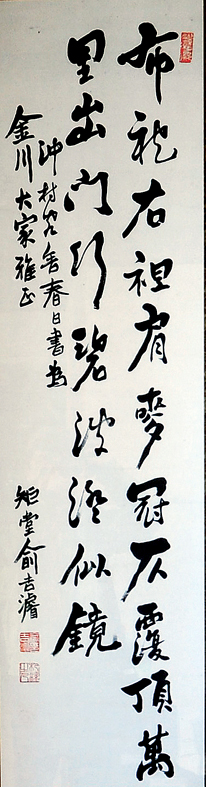 布袍右袒肩麥冠仄覆頂萬
里出門行碧波澄似鏡
沖村客舍春日書為
金川大家雅正
矩堂俞吉濬